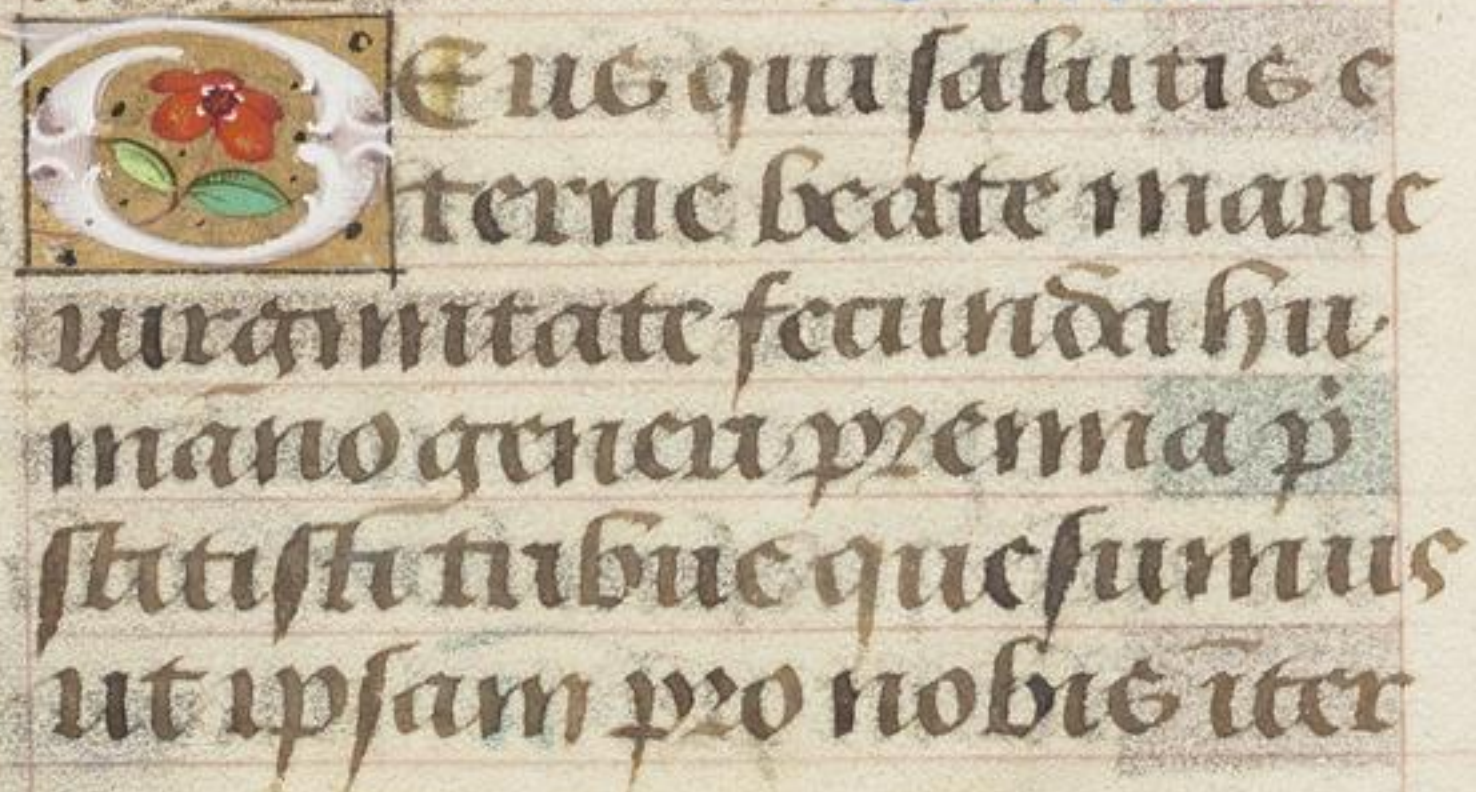 DEus qui salutis e
terne beate marie
uirginitate fecunda hu
mano generi premia p̍
stitisti tribue quesumus
ut ipsam pro nobis īter